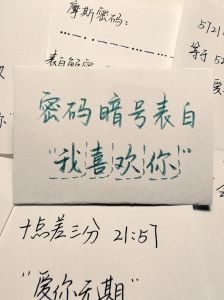 摩斯密码：
5721
等于 52
密码暗号表白
"我喜欢你"
十点差三分 21:57
"爱你无期"